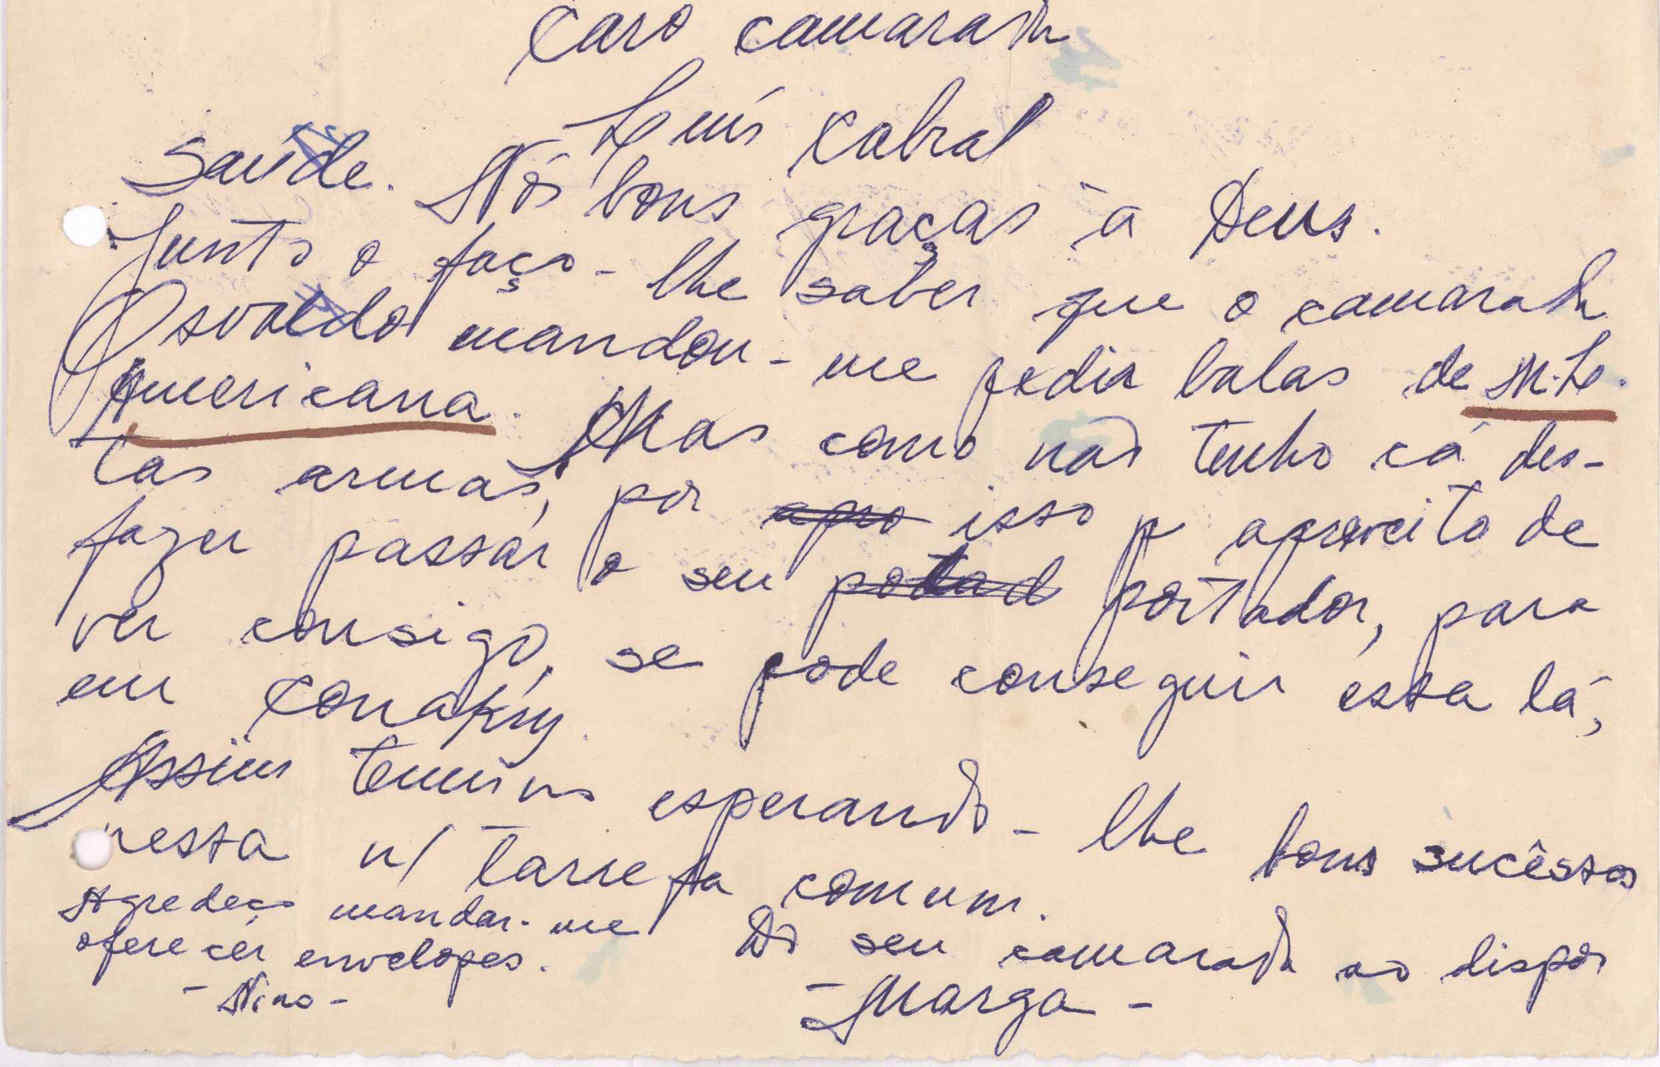 Caro camarada
Luís Cabral
Saúde. Nós bons graças a Deus.
Junto o faço-lhe saber que o camarada
Osvaldo mandou-me pedir balas de M.L.
Americana. Mas como não tenho cá des-
tas armas, por apro isso p aproveito de
fazer passar o seu potad portador, para
ver consigo, se pode conseguir esta lá,
em Conakry.
Assim termino esperando-lhe bons sucêssos
nesta n/ tarrefa comum.
Do seu camarada ao dispôr
-Marga-
Agredeço mandar-me
oferecer envelopes.
-Nino-